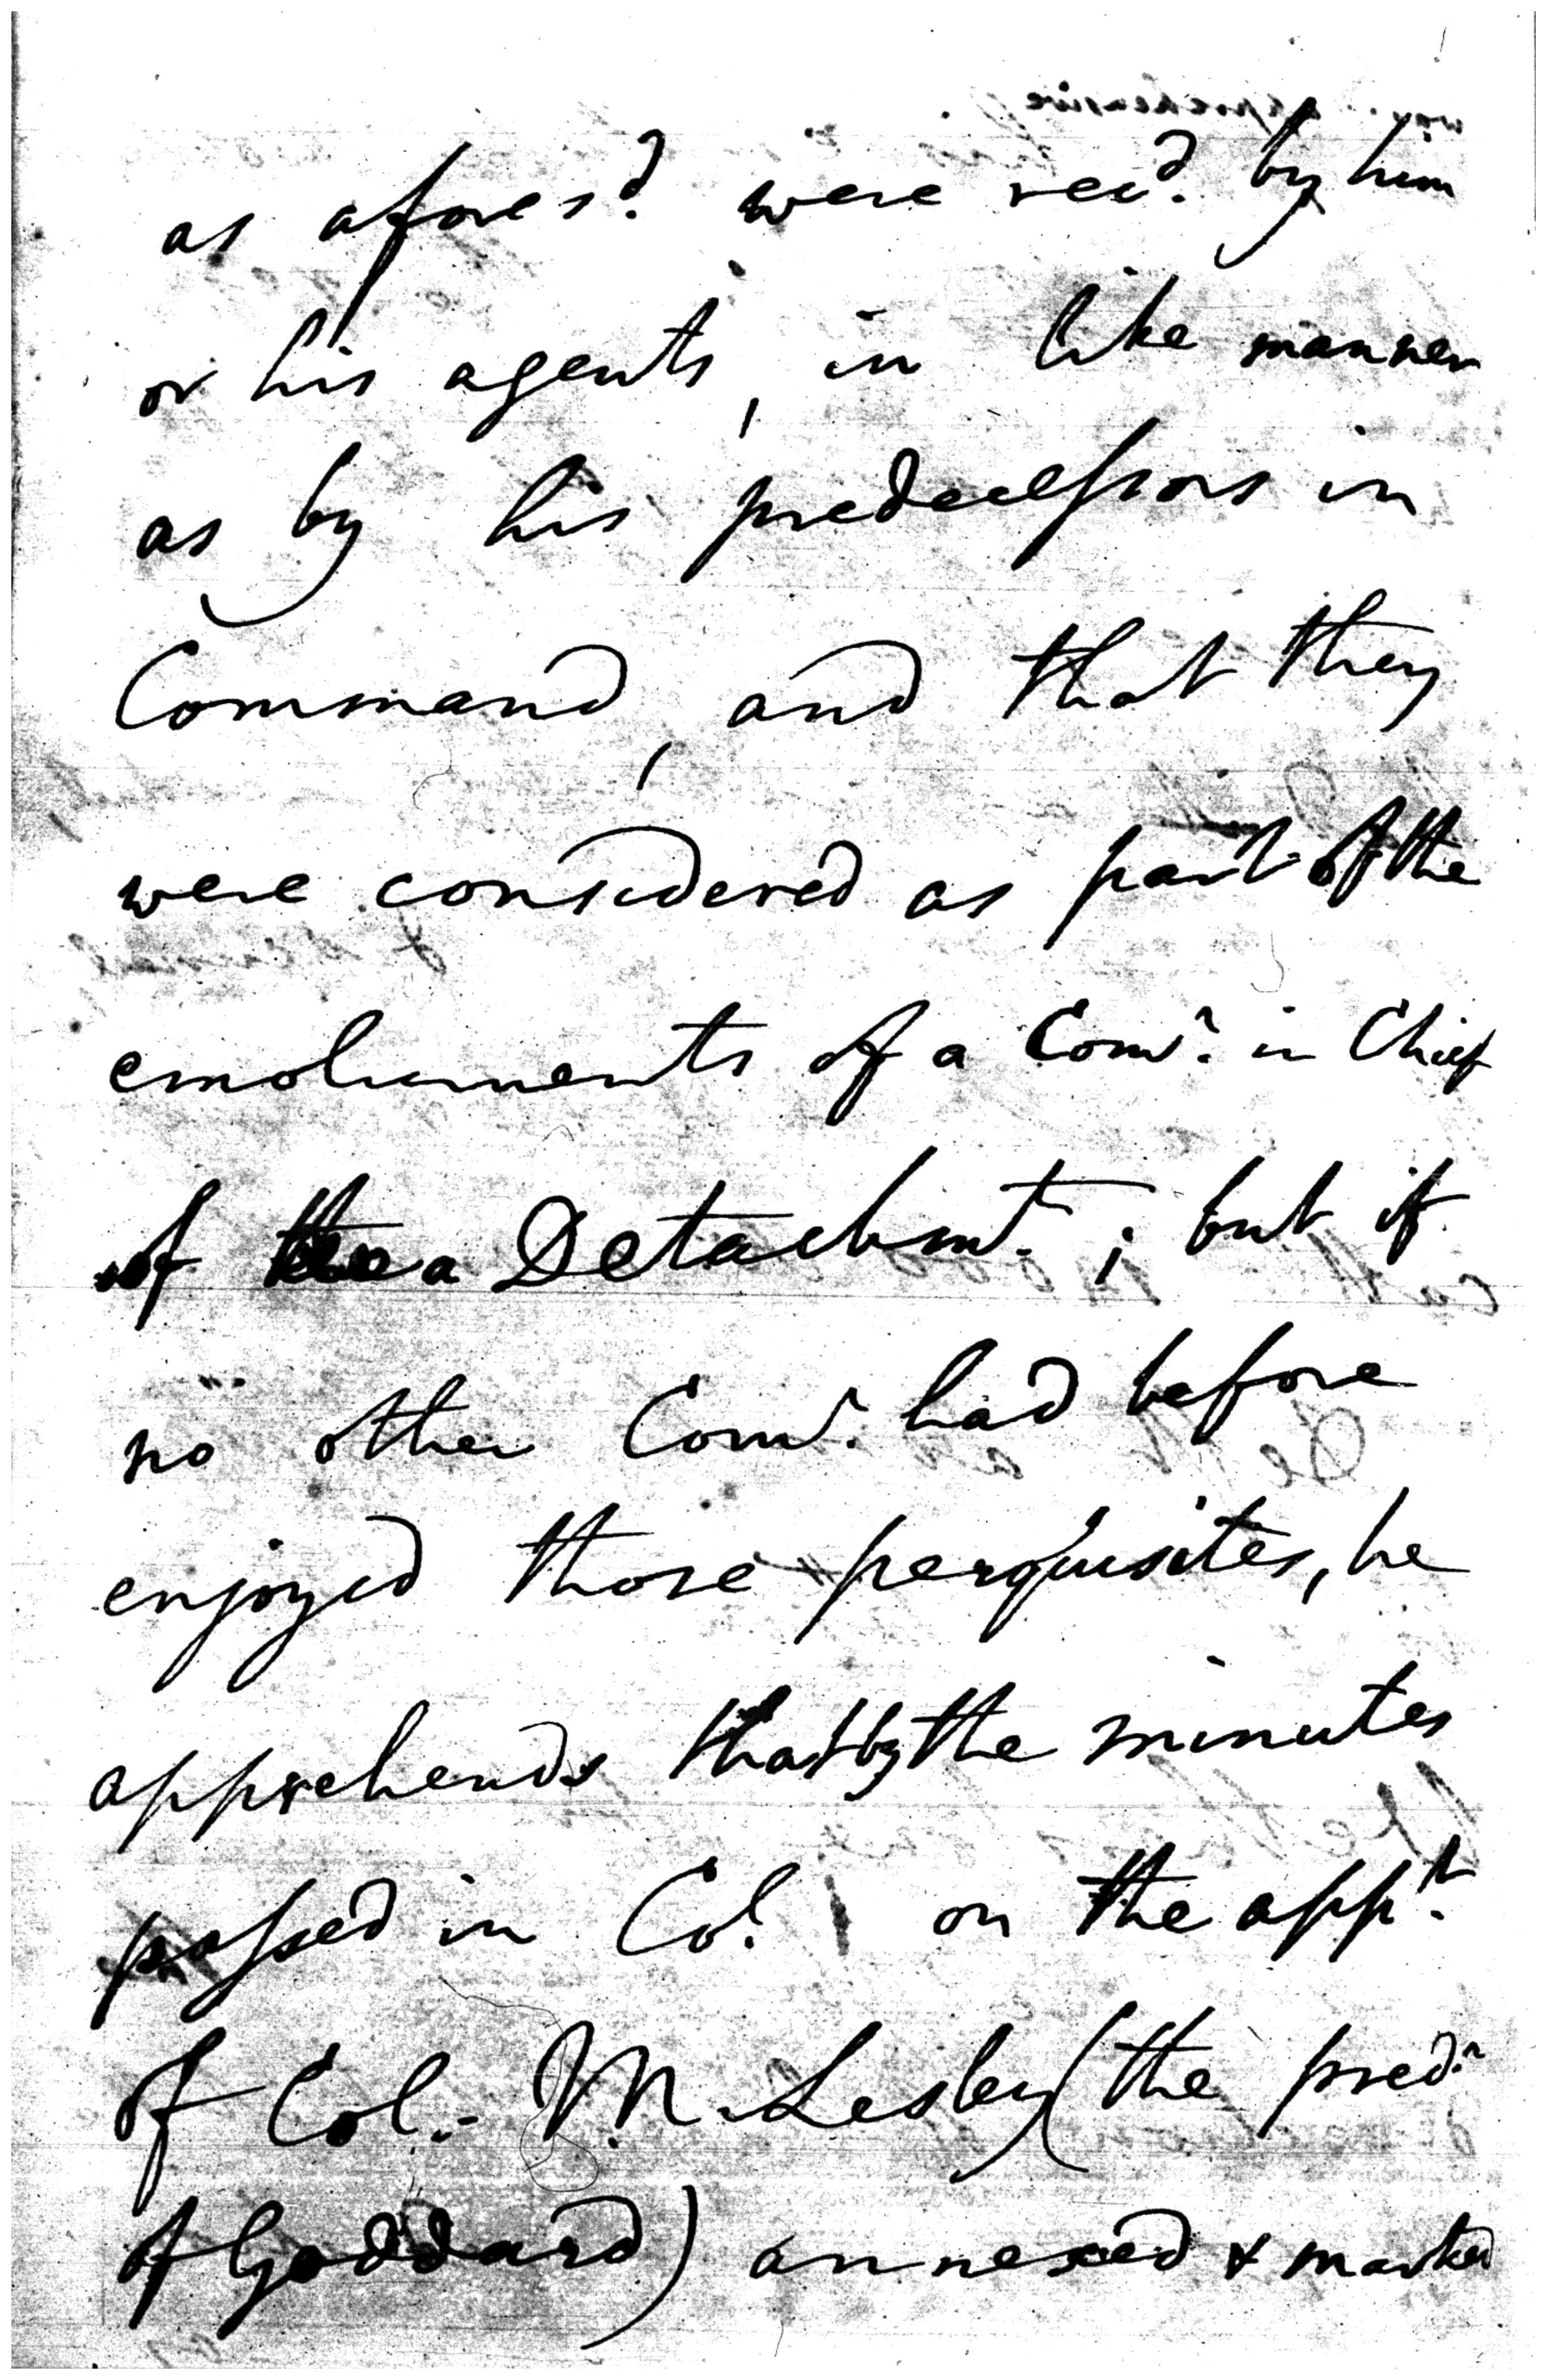 as afores^d. were rec^d. by him
or his agents, in like manner
as by his predecessors in
Command, and that they
were considered as part of the
emoluments of a Com^r. in Chief
of a Detachm^t.; but if
no other Com^r. had before
enjoyed those perquisites, he
apprehends that by the minutes
passed in Co^l. on the app^t.
of Col. M. Lesley (the pred^r.
of Goddard) annexed & marked